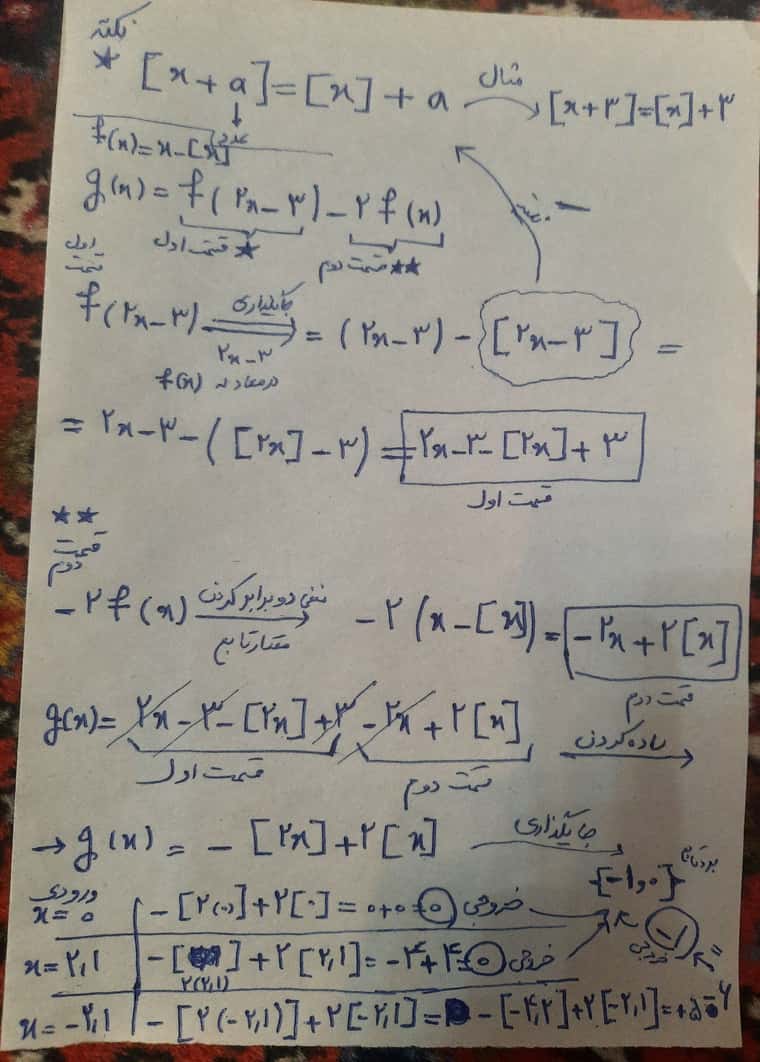 نکته
★ [x + a] = [x] + a مثال → [x+۳]=[x]+۳
عدد
f(x)=x-[x]
g(x) = f(۲x-۳) - ۲f(x)
قسمت اول ★ قسمت دوم ★★
قسمت اول
f(۲x-۳) جایگذاری = (۲x-۳) - [۲x-۳] =
۲x-۳
در معادله f(x)
= ۲x-۳-([۲x]-۳) = ۲x-۳-[۲x]+۳
قسمت اول
★★
قسمت دوم
-۲f(x) منفی دو برابر کردن → -۲(x-[x]) = -۲x+۲[x]
مقدار تابع
قسمت دوم
g(x)= ۲x-۳-[۲x]+۳-۲x+۲[x] ساده کردن →
قسمت اول قسمت دوم
→ g(x) = -[۲x]+۲[x] جایگذاری →
برد تابع
{-۱,۰}
ورودی
x=۰ -[۲(۰)]+۲[۰]=۰+۰=۰ خروجی
-۱ خروجی
x=۲,۱ -[۲(۲,۱)]+۲[۲,۱]=-۴+۴=۰ خروجی
x=-۲,۱ -[۲(-۲,۱)]+۲[-۲,۱]= -[-۴,۲]+۲[-۲,۱]=+۵-۶ =